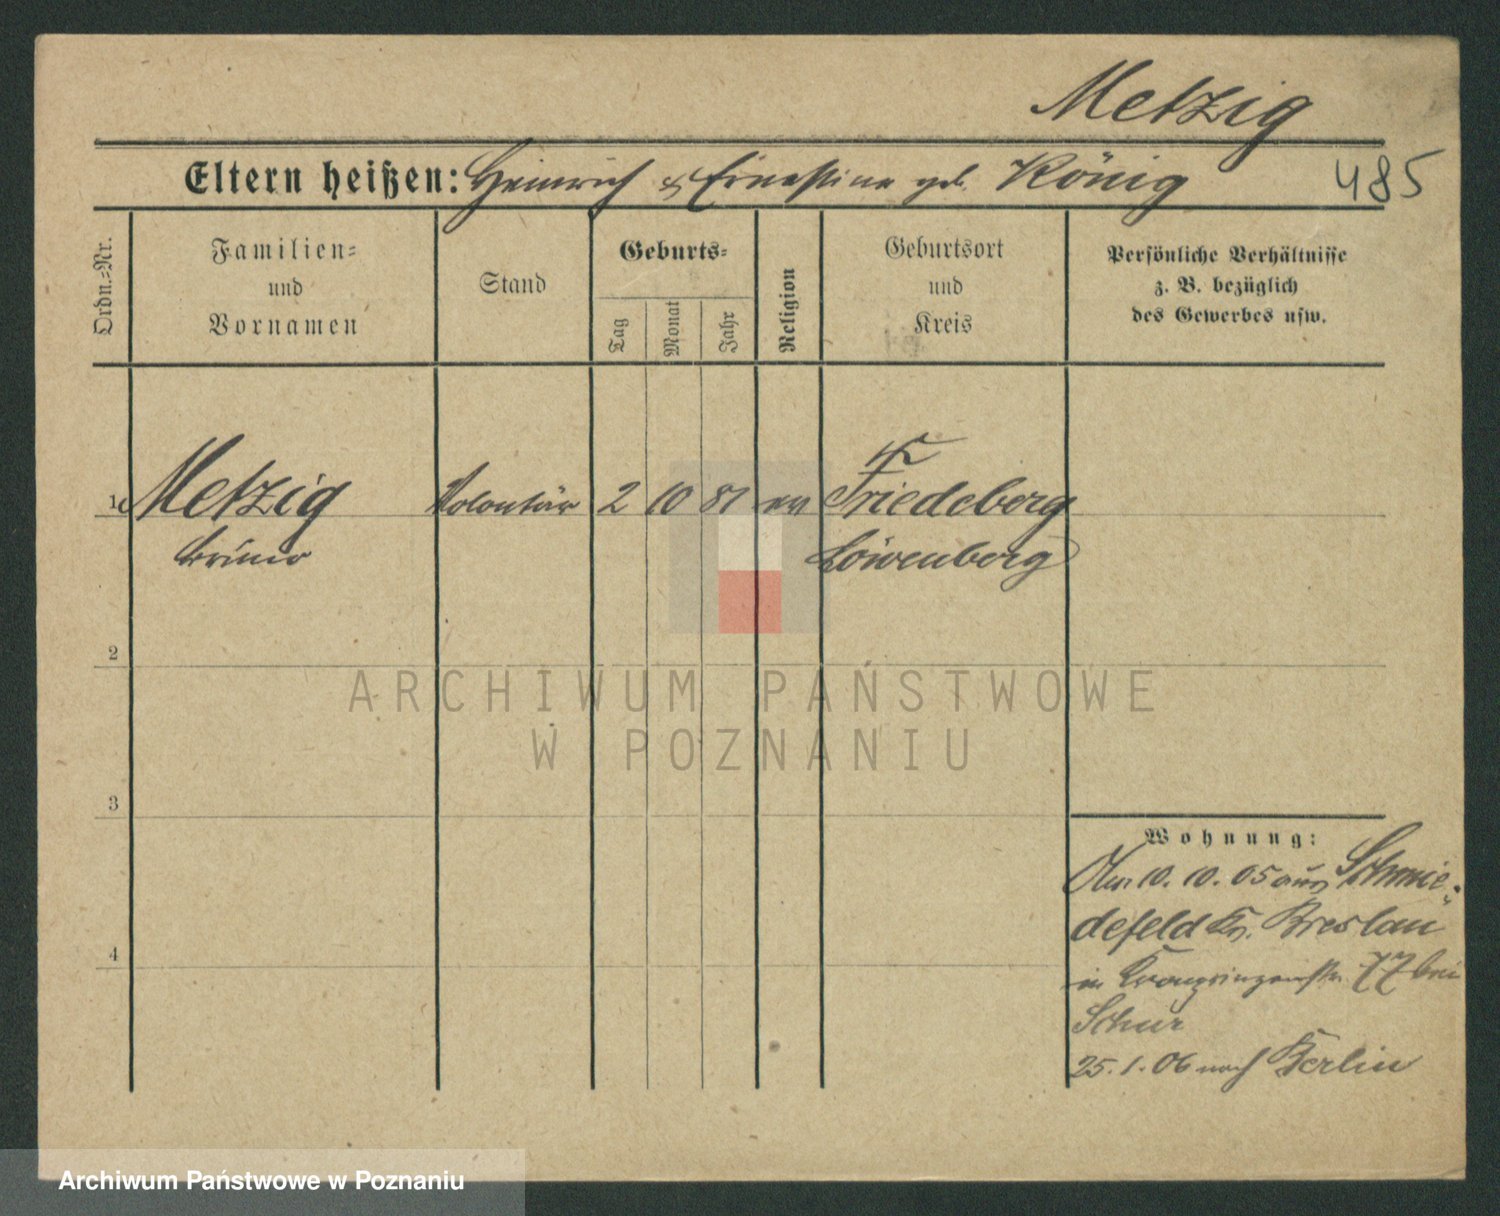 Metzig
Eltern heißen: Heinrich & Ernestine geb. König
485
Ordn.=Nr.
Familien=
und
Vornamen
Stand
Geburts=
Tag
Monat
Jahr
Religion
Geburtsort
und
Kreis
Persönliche Verhältnisse
z. B. bezüglich
des Gewerbes usw.
1 Metzig Volontär 2 10 81 ev Friedeberg
Bruno Löwenberg
2
ARCHIWUM PAŃSTWOWE
W POZNANIU
3
Wohnung:
Am 10. 10. 05 aus Schmie-
defeld Kr. Breslau
4
in Kronprinzenstr. 77 bei
Schur
25. 1. 06 nach Berlin
Archiwum Państwowe w Poznaniu